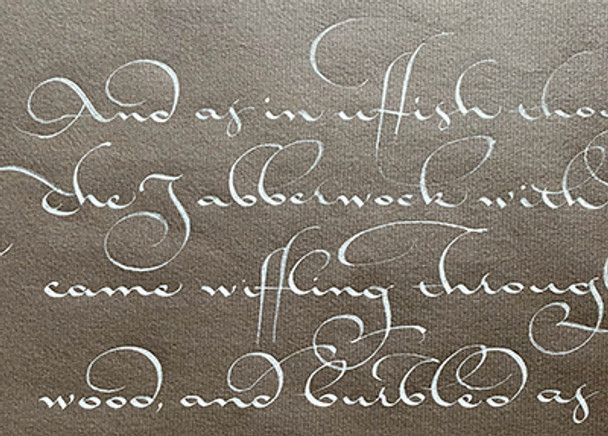 And as in uffish tho
The Jabberwock with
came wiffling throug
wood, and burbled as